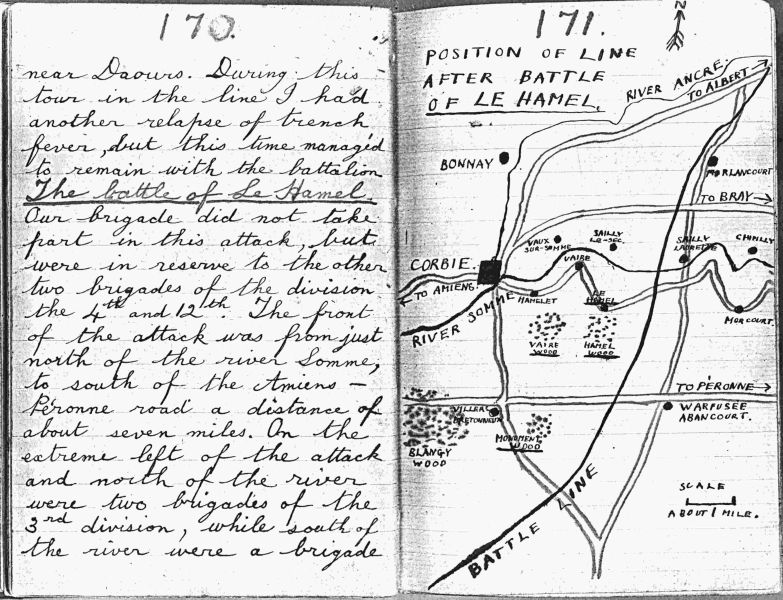 170.
near Daours. During this
tour in the line I had
another relapse of trench
fever, but this time managed
to remain with the battalion
The battle of Le Hamel.
Our brigade did not take
part in this attack, but
were in reserve to the other
two brigades of the division
the 4th and 12th. The front
of the attack was from just
north of the river Somme,
to south of the Amiens –
Péronne road a distance of
about seven miles. On the
extreme left of the attack
and north of the river
were two brigades of the
3rd division, while south of
the river were a brigade
171.
N
POSITION OF LINE
AFTER BATTLE
OF LE HAMEL.
RIVER ANCRE.
TO ALBERT
BONNAY
MORLANCOURT
TO BRAY
VAUX
SUR-SOMME
SAILLY
LE-SEC.
SAILLY
LAURETTE
CHIPILLY
CORBIE.
VAIRE
TO AMIENS.
HAMELET
LE
HAMEL
MORCOURT.
RIVER SOMME
VAIRE
WOOD
HAMEL
WOOD
TO PÉRONNE
VILLERS
BRETONNEUX
WARFUSEE
ABANCOURT.
MONUMENT
WOOD
BLANGY
WOOD
BATTLE LINE
SCALE
ABOUT 1 MILE.